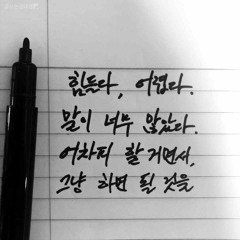 힘든다, 어렵다.
말이 너무 많았다.
어차피 할 거면서,
그냥 하면 될 것을